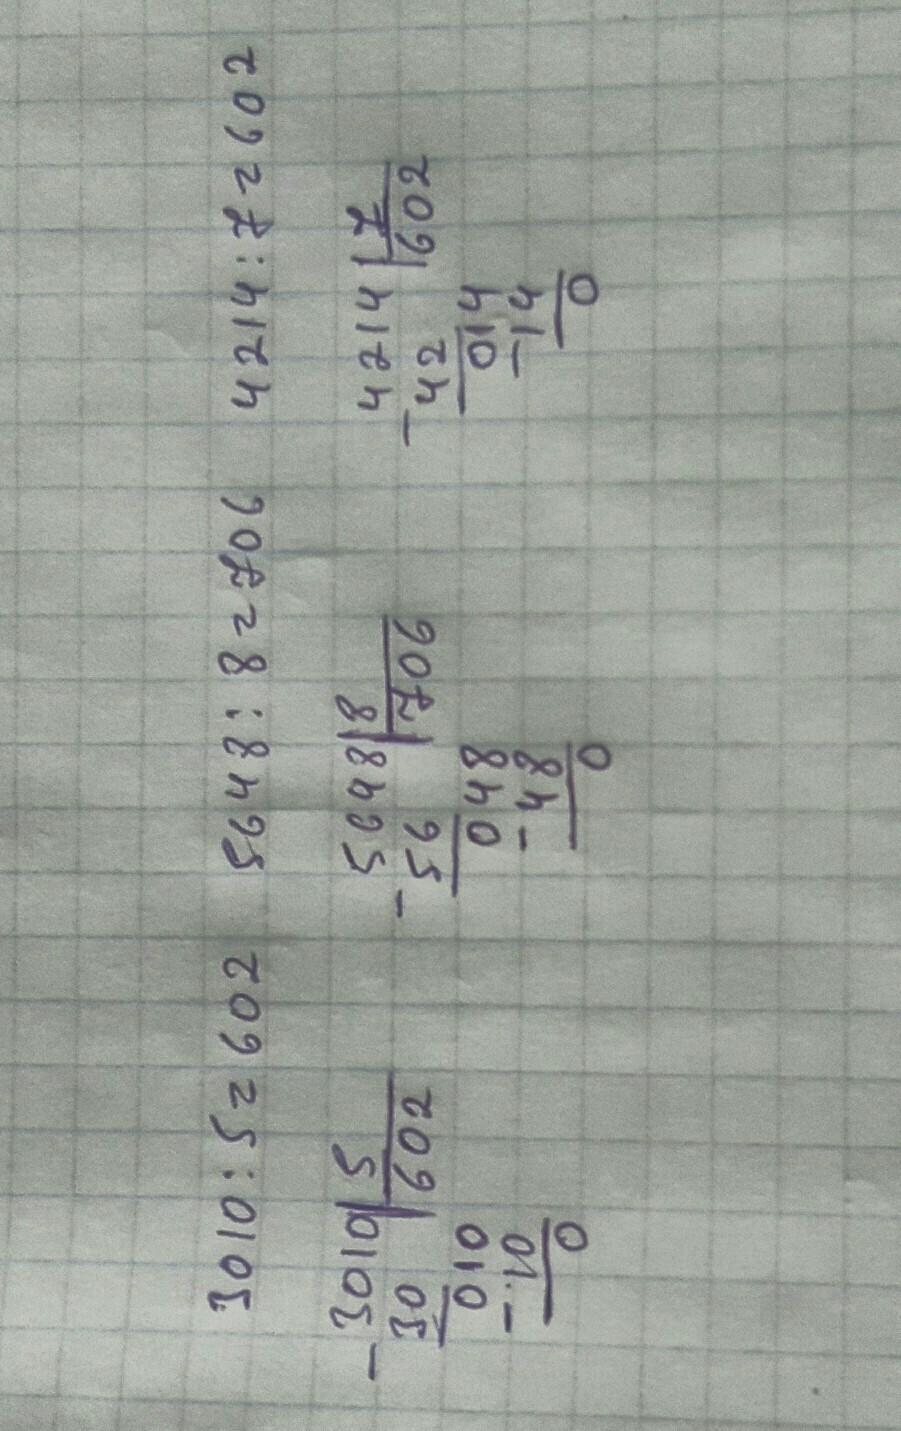 3010:5=602 5648:8=706 4214:7=602
-3010|5 5648|8 4214|7
30 602 -56 706 -42 602
010 048 014
-10 -48 -14
0 0 0